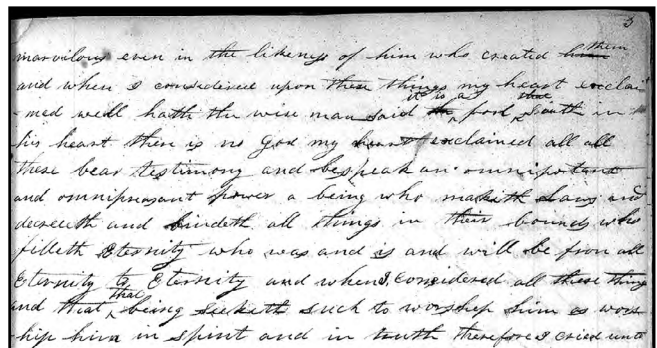 3
marvilous even in the likeness of him who created him them
and when I considered upon these things my heart exclai
med well hath the wise man said the it is a fool that saith in
his heart there is no God my heart exclained all all
these bear testimony and bespeak an omnipotant
and omnipreasant power a being who makith Laws and
decreeeth and bindeth all things in their bounds who
filleth Eternity who was and is and will be fron all
Eternity to Eternity and when I considered all these things
and that that being seeketh such to worshep him as wors
hip him in spirit and in truth therefore I cried unto